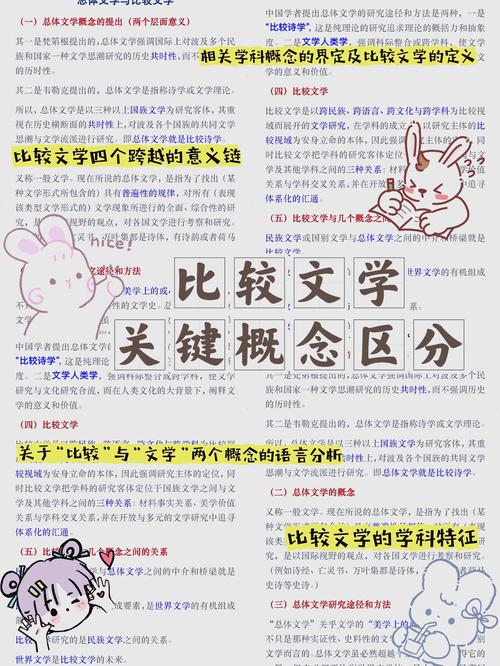 总体文学与比较文学
(一)总体文学概念的提出(两个层面意义)
其一是梵第根提出的，总体文学强调国际上对波及多个民
族和国家一种文学思潮研究的历史共时性，而不
的历时性。
其二是韦勒克提出的，总体文学是指称诗学或文学理论。
所以，总体文学是以三种以上国族文学为研究客体，其重
视在历史横断面的共时性上，对波及各个国族的共同文学
思潮与文学流派进行研究。即总体文学就是比较诗学。
比较文学四个跨越的意义链
又称一般文学。现在所说的总体文学，是指为了找出(某
种文学形式所包含的)具有普遍性的规律，对所有(表现
该类型文学形式的)文学现象所进行的全面、综合性的研
视野的观点，对各国文学进行考察和研究。
灵书、万叶集都是诗体，有诗前或者荷马
nice!
究途径和方法
中国学者提出
“比较诗学”，这是纯理论的研究追求理论的概
度。二是文学人类学，强调科际整合或跨学科，使文学
研究与文化研究合流，而在人类文化的大背景下，阐释文
学的意义和价值。
(四)比较文学
关于“比较”与“文学”两个概念的语言分析
比较视域为安身立命的本体，因此强调研究主体的定位，同
时比较文学把学科的研究客体定位于民族文学之间与文
学及其他学科之间的三种关系：材料事实关系、美学价值
关系与学科交叉关系，并在开放与多元的文学研究中追寻
体系化的汇通。
(五)比
概念之间的关系
与总体文学之间的中介和桥梁就是
成要素，是世界文学的
研究的是民族文学之间的关系。
世界文学是比较文学的未来。
中国学者提出总体文学的研究途径和方法是两种，一是
“比较诗学”，这是纯理论的研究追求理论的概括力和抽象
度。二是文学人类学，强调科际整合或跨学科，使文学
相关学科概念的界定及比较文学的定义
(四)比较文学
比较文学是以跨民族、跨语言、跨文化与跨学科为比较视
域而展开的文学研究，在学科的成立上以研究主体的比
较视域为安身立命的本体，因此强
时比较文学把学科的研究客体定位
学及其他学科之间的三种关系：材
关系与学科交叉关系，并在开放与
体系化的汇通。
(五)比较文学与几个概念之
民族文学或国别文学与总体文学之间的中介和桥梁就是
比较文学
世界文学的有机组成
比较文学
关键概念区分
其一是梵第根提出的，总体文学强调国际上对波及多个民
族和国家一种文学思潮研究的历史共时性，而不强调历史
的历时性。
其二是韦勒克提出的，总体文学是指称诗学或文学理论。
所以，总体文学是以三种以上国族文学为研究客体，其重
共同文学
思潮与文学流派进行研究。即总体文学就是比较诗学。
(二)总体文学的概念
又称一般文学。现在所说的总体文学，是指为了找出(某
比较文学的学科特征
究，是以国际视野的观点，对各国文学进行考察和研究。
(例如诗经、亡灵书、万叶集都是诗体，有诗前或者荷马
史诗等史诗。)
(三)总体文学研究途径和方法
“总体文学”关乎文学的“美学上的
不只是那种实证性、史料性的文